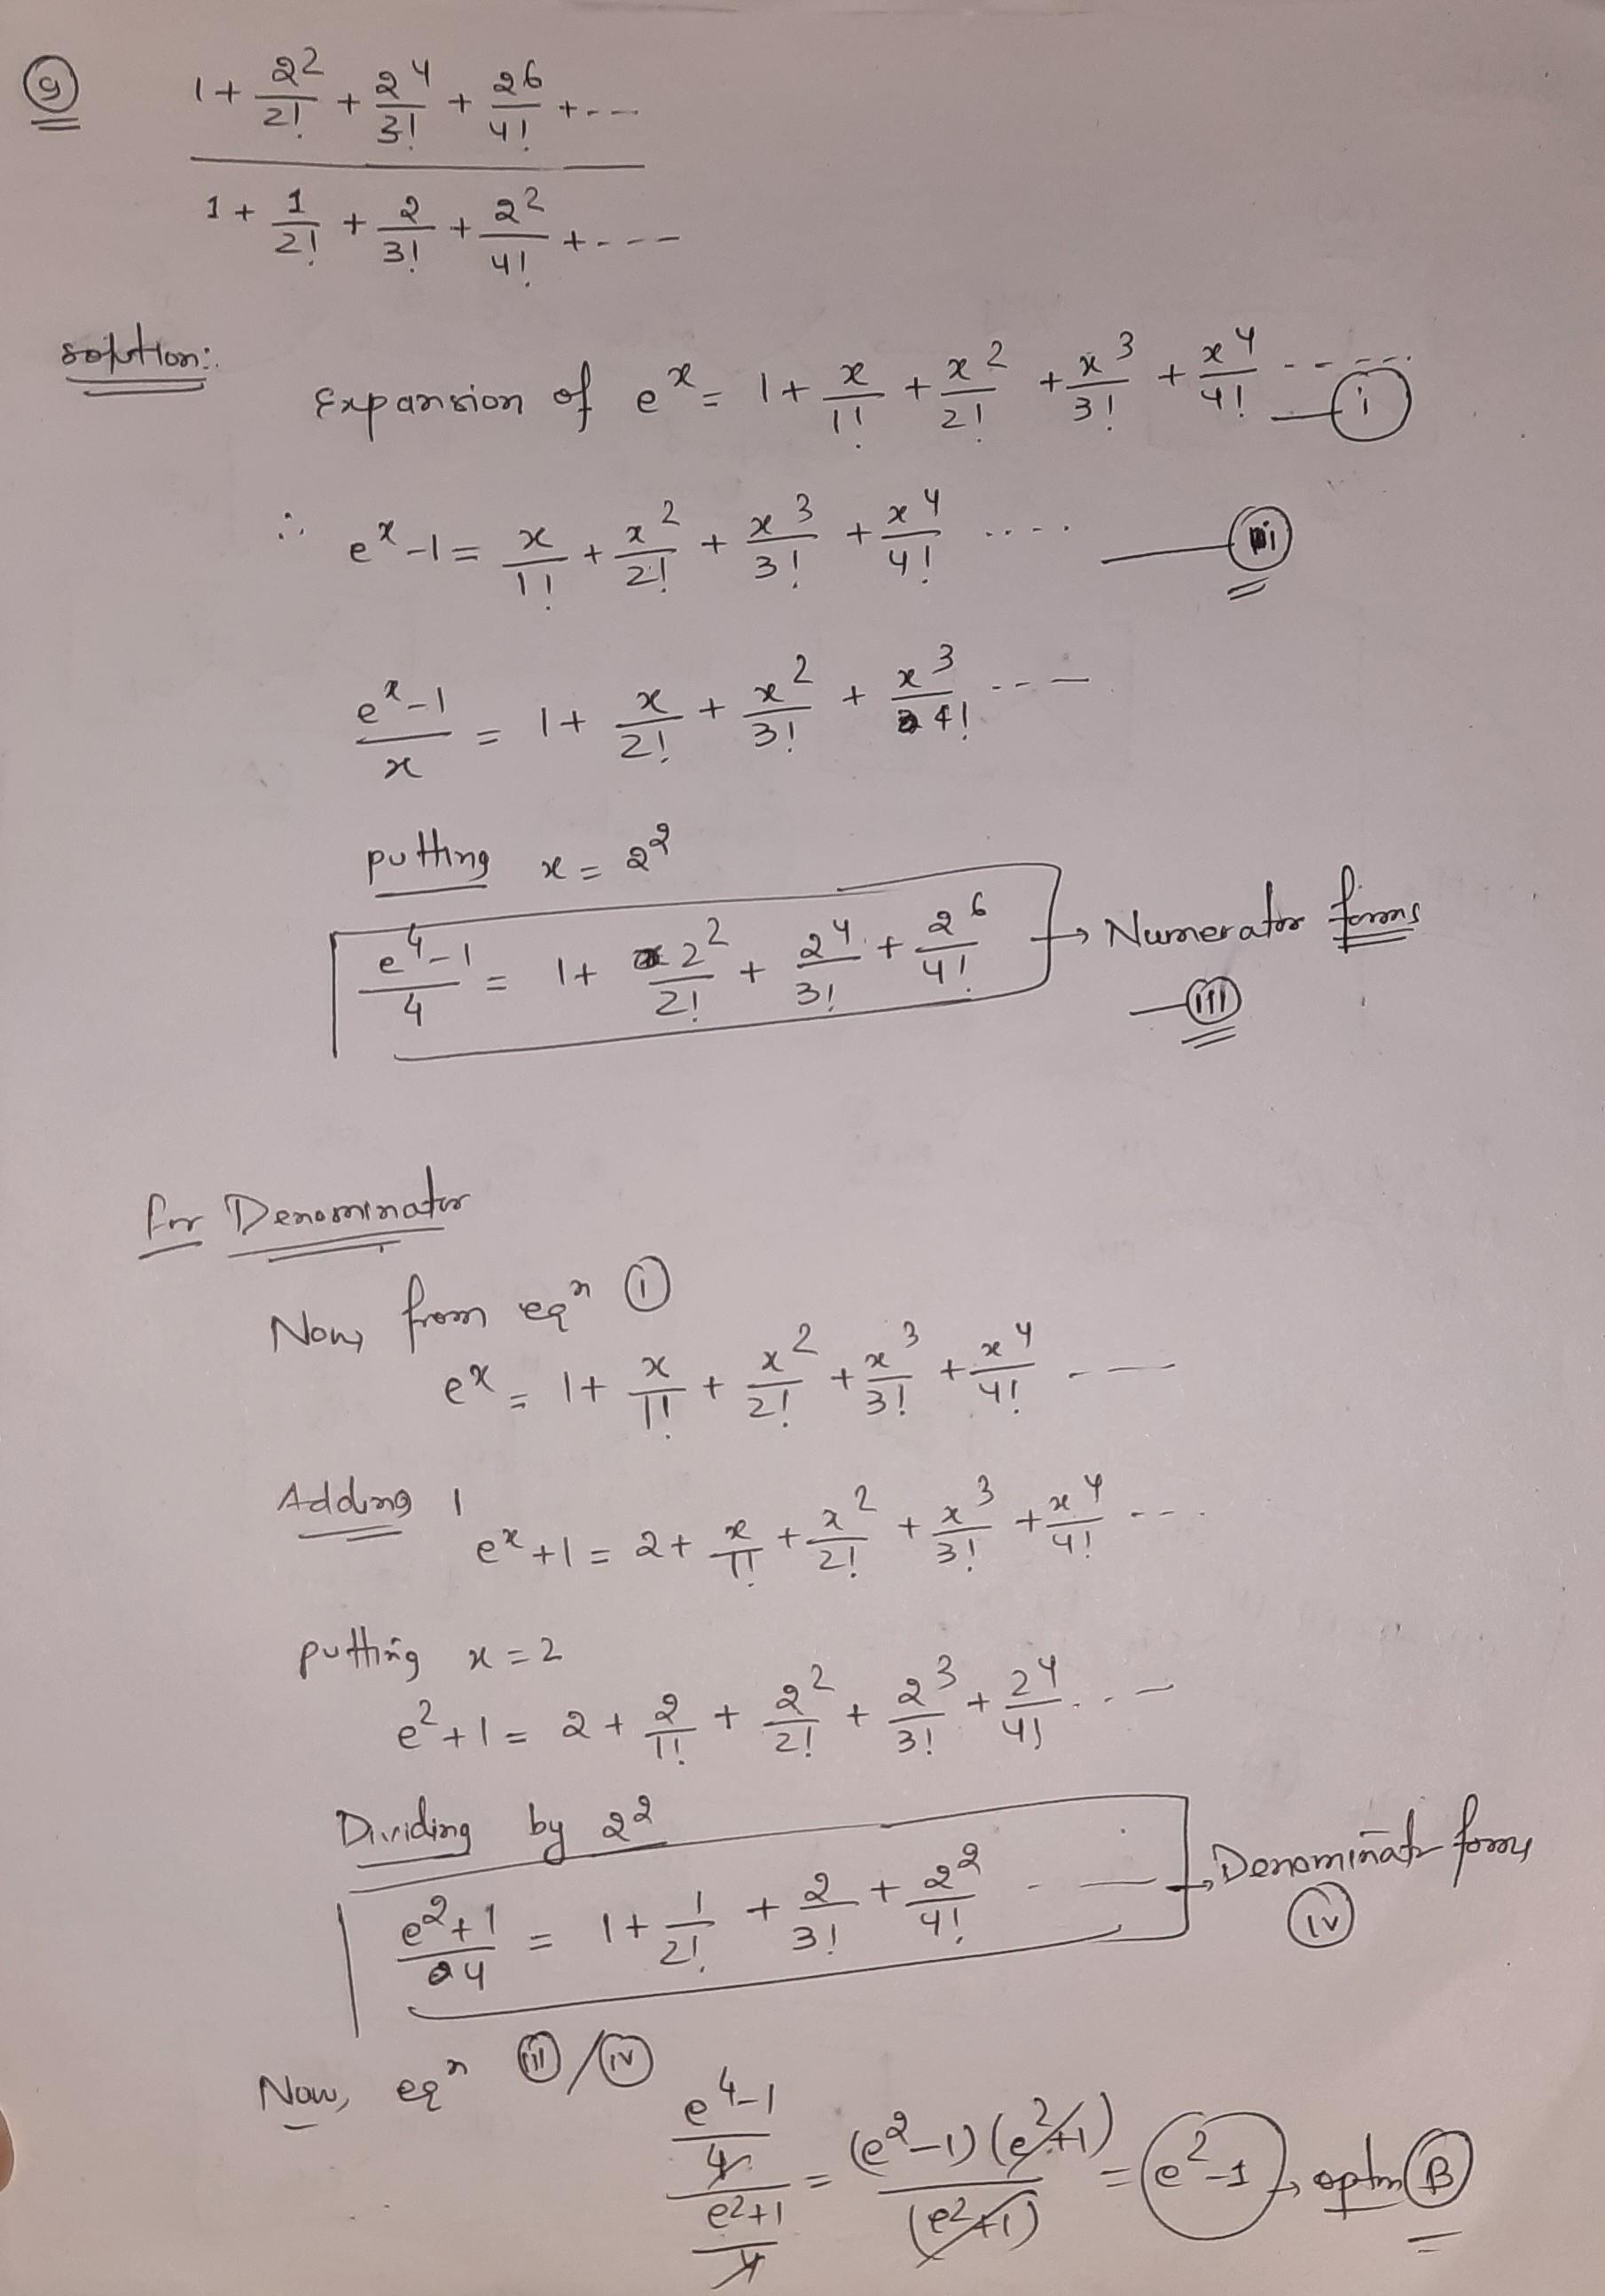 9
1 + 2²/2! + 2⁴/3! + 2⁶/4! + ---
1 + 1/2! + 2/3! + 2²/4! + ----
solution:
Expansion of eˣ = 1 + x/1! + x²/2! + x³/3! + x⁴/4! ----- (i)
∴ eˣ-1 = x/1! + x²/2! + x³/3! + x⁴/4! .... (ii)
(eˣ-1)/x = 1 + x/2! + x²/3! + x³/4! ---
putting x = 2²
(e⁴-1)/4 = 1 + 2²/2! + 2⁴/3! + 2⁶/4! → Numerator forms
(iii)
for Denominator
Now, from eqⁿ (i)
eˣ = 1 + x/1! + x²/2! + x³/3! + x⁴/4! ---
Adding 1
eˣ+1 = 2 + x/1! + x²/2! + x³/3! + x⁴/4! ---
putting x = 2
e²+1 = 2 + 2/1! + 2²/2! + 2³/3! + 2⁴/4! ---
Dividing by 2²
(e²+1)/4 = 1 + 1/2! + 2/3! + 2²/4! --- → Denominator form
(iv)
Now, eqⁿ (iii)/(iv)
((e⁴-1)/4)/((e²+1)/4) = (e²-1)(e²+1)/(e²+1) = e²-1 → optn (B)